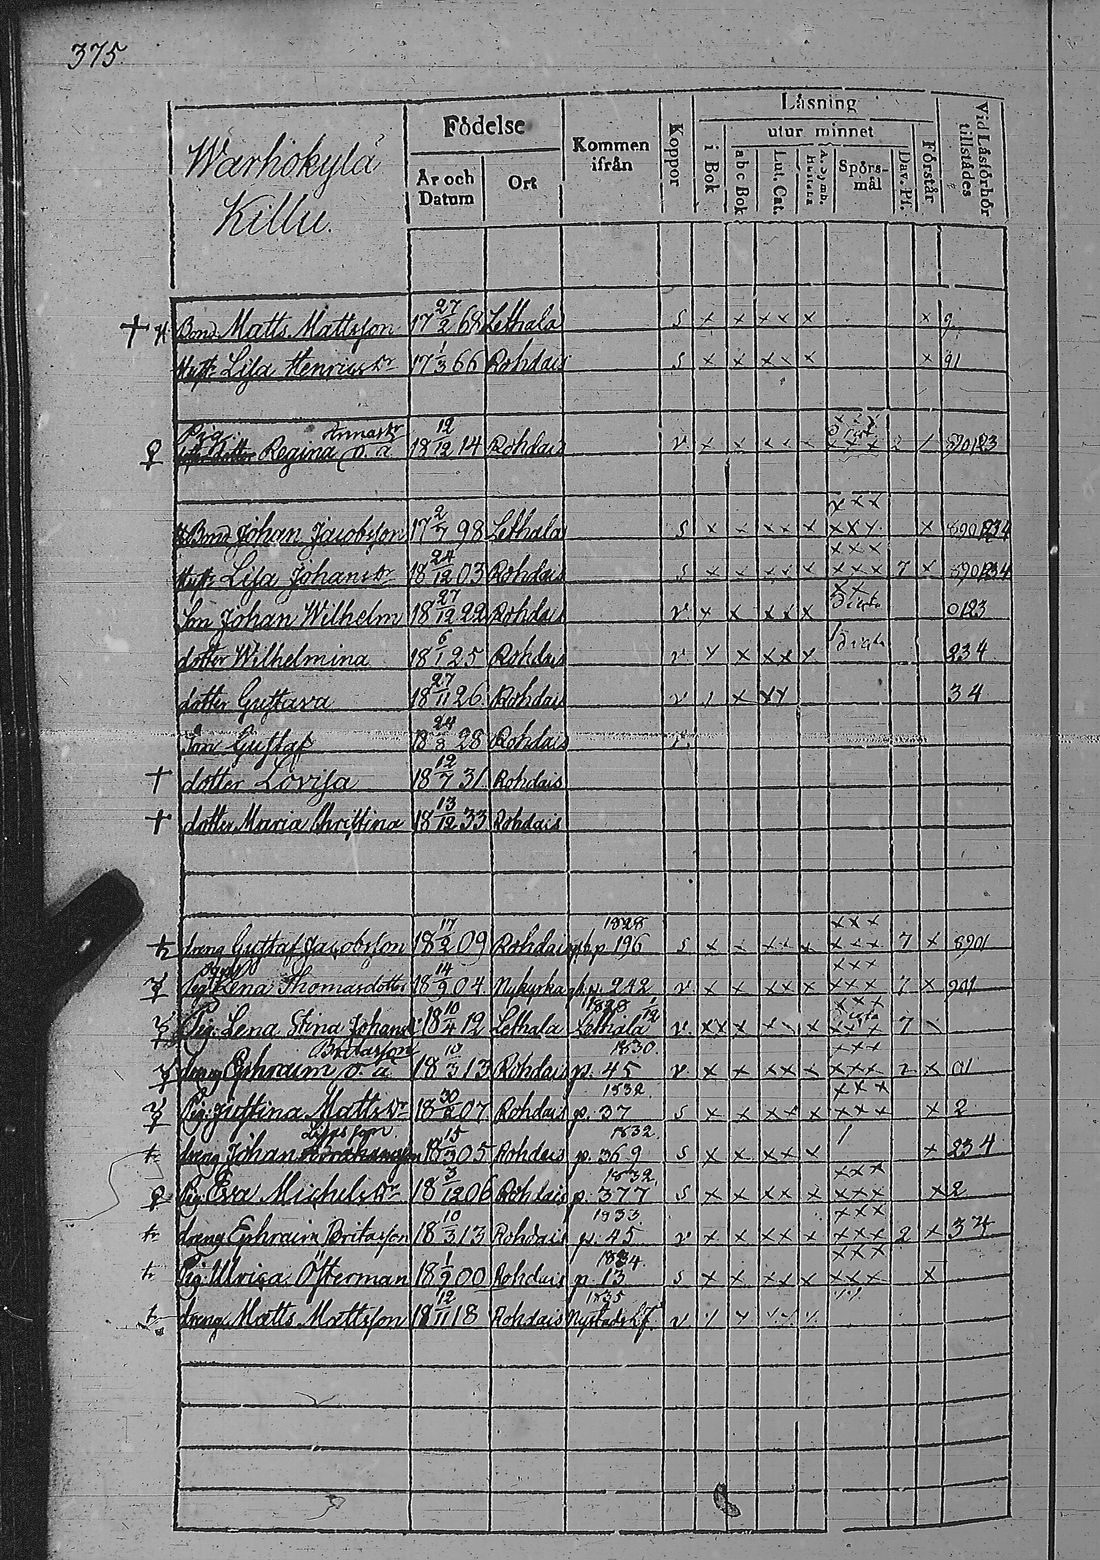 375.
Warhokylä
Killu.
Födelse
År och Datum
Ort
Kommen ifrån
Koppor
Läsning
i Bok
utur minnet
abc Bok
Lut. Cat.
Spörsmål
Dav. Pf.
Förstår
Vid Läsförhör tillstädes
Bond Matts Mattsson 17 27/2 68 Lethala s x x x x x x 9
Hust. Lisa Henricsdr 17 1/3 66 Rohdais s x x x x x x 91
Pig. Annasdr
Regina o. ä 18 12/12 14 Rohdais v x x x x x
Bond Johan Jacobsson 17 2/7 98 Lethala s x x x x x x x x x
Hust. Lisa Johansdr 18 24/12 03 Rohdais s x x x x x x x x 7 x
Son Johan Wilhelm 18 27/12 22 Rohdais v x x x x x 0123
dotter Wilhelmina 18 6/1 25 Rohdais v x x x x x 234
dotter Gustava 18 27/11 26 Rohdais v x x x 34
Son Gustaf 18 24/3 28 Rohdais v.
† dotter Lovisa 18 12/7 31 Rohdais
† dotter Maria Christina 18 13/12 33 Rohdais
1828
dräng Gustaf Jacobsson 18 17/2 09 Rohdais p 196 s x x x x x x x x 7 x 8901
Lena Thomasdotter 18 14/9 04 Nykyrka p. 242 v x x x x x x x x 7 x 901
1828
Pig. Lena Stina Johansdr 18 10/4 12 Lethala Lethala v. x x x x x x 7
Britasson 1830.
dräng Ephraim o. ä 18 10/3 13 Rohdais p. 45 v. x x x x x x x x 2 x 01
1832.
Pig. Justina Mattsdr 18 30/2 07 Rohdais p. 37 s x x x x x x x x x 2
1832.
dräng Johan 18 15/3 05 Rohdais p. 369 s x x x x x x 234
1832.
Pig. Eva Michelsdr 18 3/12 06 Rohdais p. 377 s x x x x x x x x x 2
1833
dräng Ephraim Britasson 18 10/3 13 Rohdais p. 45 v x x x x x x x x 2 x 34
1834
Pig. Ulrica Österman 18 1/9 00 Rohdais p. 13 s x x x x x x x x x
1835
dräng Matts Mattsson 18 12/11 18 Rohdais Nystads Lf. v